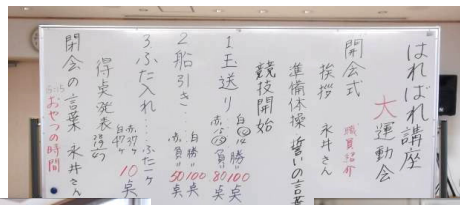 はればれ講座
大運動会
開会式 職員紹介
挨拶 永井さん
準備体操 誓いの言葉
競技開始
1 玉送り 白 勝=100点 赤 負=80点
2 船引き… 白 勝=100点 赤 負=50点
3 ふた入れ…ふた一ヶ 10点
赤37ヶ
得点発表
閉会の言葉 永井さん
おやつの時間